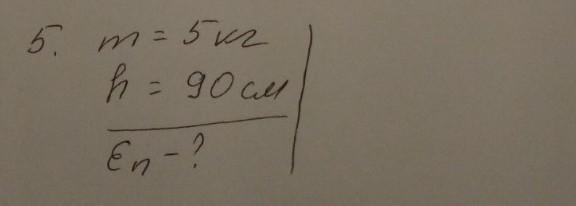 5. m = 5 кг
h = 90 см
Eп - ?